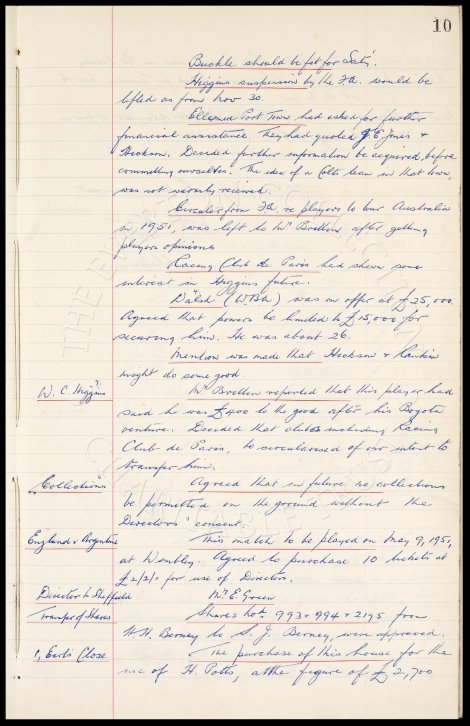 10
Buckle should be fit for Sat'y.
Higgins suspension by the F.A. would be
lifted as from Nov 30.
Ellesmere Port Town had asked for further
financial assistance. They had quoted J. E. Jones +
Hickson. Decided further information be acquired before
committing ourselves. The idea of a Colts team in that town,
was not warmly received.
Circular from F.A. re players to tour Australia
in 1951, was left to Mr Bretton after getting
players opinions
Racing Club de Paris had shewn some
interest in Higgins future.
Walsh (WBA) was on offer at £25,000
Agreed that powers be limited to £15,000 for
securing him. He was about 26.
Mention was made that Hickson & Rankin
might do some good.
W. C. Higgins
Mr Bretton reported that this player had
said he was £400 to the good after his Bogota
venture. Decided that clubs including Racing
Club de Paris, be circularised of our intent to
transfer him.
"Collections"
Agreed that in future no collections
be permitted on the ground without the
Directors' consent.
England v Argentine
This match to be played on May 9, 1951
at Wembley. Agreed to purchase 10 tickets at
£2/2/0 for use of Directors.
Director to Sheffield
Mr E. Green
Transfer of Shares
Shares Nos. 993 & 994 & 2195 from
W. H. Berney to S. J. Berney, were approved.
Earls Close
The purchase of this house for the
use of H. Potts, at the figure of £2,700